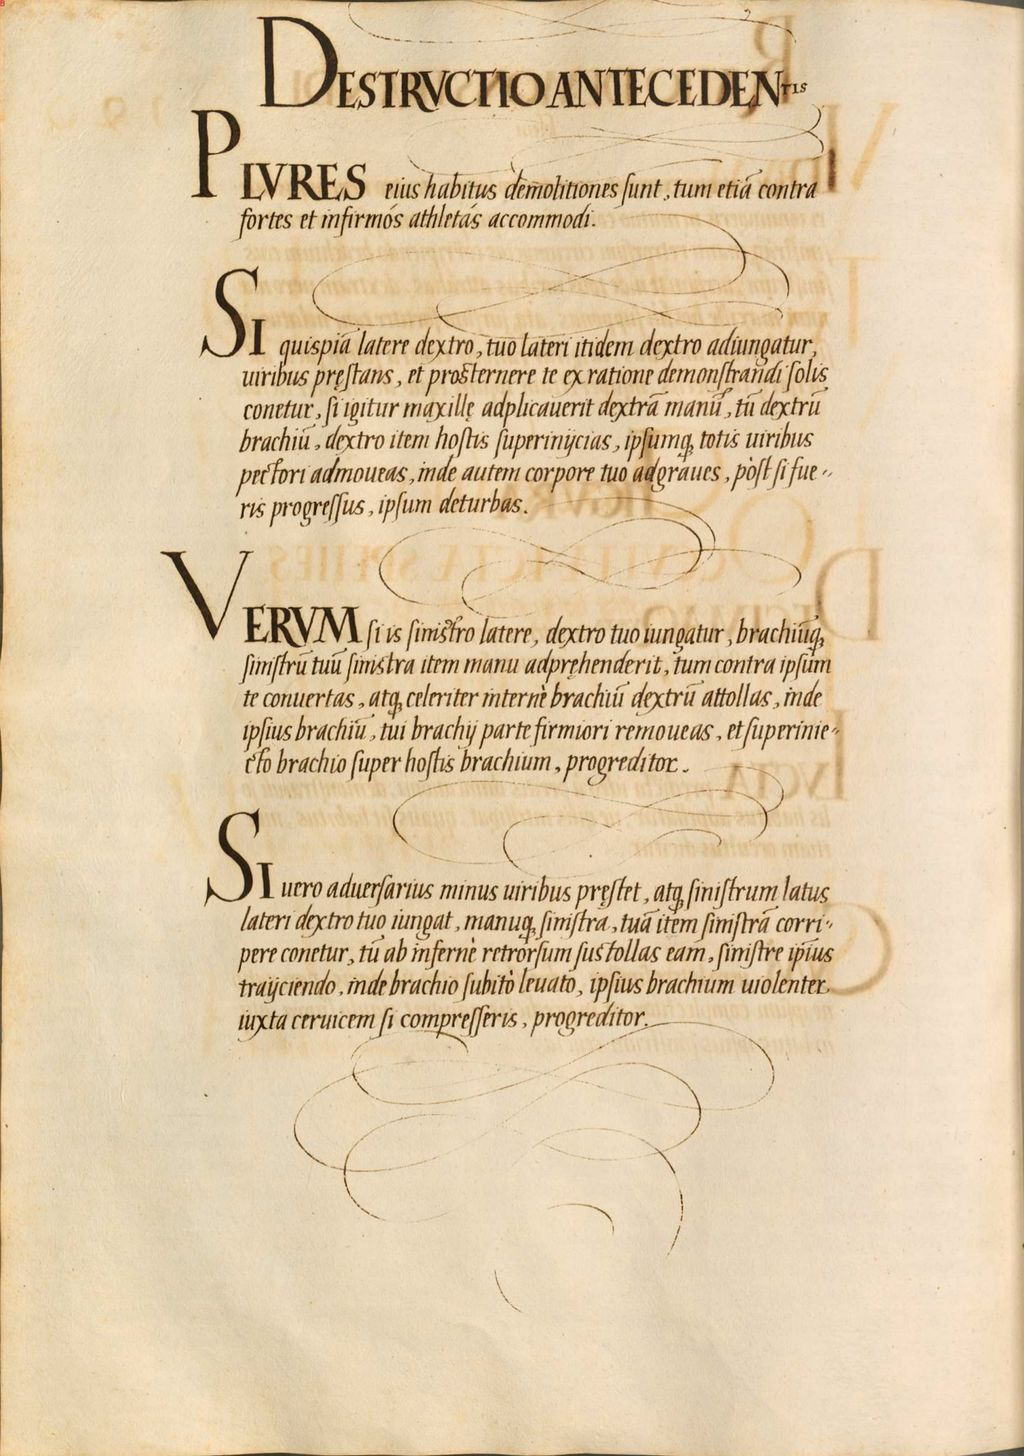 DESTRVCTIO ANTECEDENTIS
PLVRES eius habitus demolitiones sunt, tum etiã contra
fortes et infirmós athletás accommodi.
SI quispiã latere dextro, tuo lateri itidem dextro adiungatur,
uiribus pręstans, et prosternere te ex ratione demonstrandi solis
conetur, si igitur maxillę adplicauerit dextrã manũ, tũ dextrũ
brachiũ, dextro item hostis superinijcias, ipsumq, totis uiribus
pectori admoueas, inde autem corpore tuo adgraues, pòst si fue-
ris progressus, ipsum deturbas.
VERVM si is sinistro latere, dextro tuo iungatur, brachiũq,
sinistrũ tuũ sinistra item manu adpręhenderit, tum contra ipsum
te conuertas, atq, celeriter internè brachiũ dextrũ attollas, inde
ipsius brachiũ, tui brachij parte firmiori remoueas, et superinie-
cto brachio super hostis brachium, progreditor.
SI uero aduersarius minus uiribus pręstet, atq, sinistrum latus
lateri dextro tuo iungat, manuq, sinistra, tuã item sinistrã corri-
pere conetur, tũ ab infernè retrorsum sustollas eam, sinistre ipius
traijciendo, inde brachio subitò leuato, ipsius brachium uiolenter
iuxta ceruicem si compresseris, progreditor.